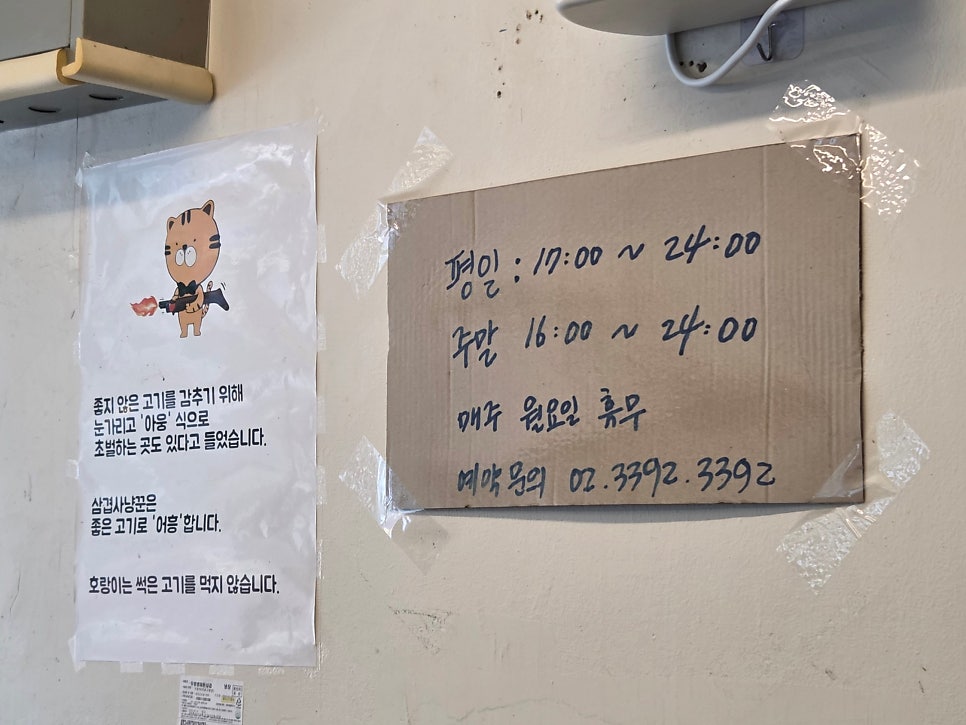 좋지 않은 고기를 감추기 위해
눈가리고 '아웅' 식으로
초벌하는 곳도 있다고 들었습니다.
삼겹사냥꾼은
좋은 고기로 '어흥'합니다.
호랑이는 썩은 고기를 먹지 않습니다.
평일 : 17:00 ~ 24:00
주말 16:00 ~ 24:00
매주 월요일 휴무
예약문의 02.3392.3392